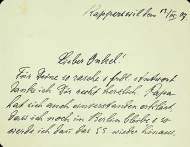 Rapperswil den 17/VII. 09
Lieber Onkel!
Für Deine so rasche & frdl. Antwort
danke ich Dir recht herzlich. Papa
hat sich auch einverstanden erklärt,
dass ich noch in Berlin bleibe & so
werde ich dann das SS wieder hinaus.